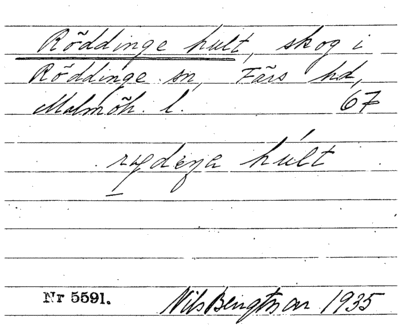 Röddinge hult, skog i
Röddinge sn, Färs hd,
Malmöh. l. 67
hult
Nr 5591. Nils Bengtsson 1935